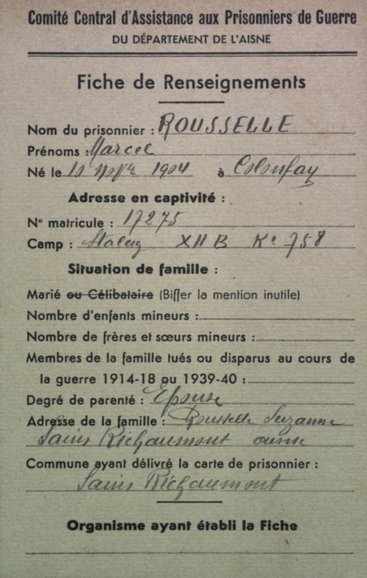 Comité Central d'Assistance aux Prisonniers de Guerre
DU DÉPARTEMENT DE L'AISNE
Fiche de Renseignements
Nom du prisonnier : ROUSSELLE
Prénoms : Marcel
Né le 10 1904 à Colonfay
Adresse en captivité :
N° matricule : 17275
Camp : Stalag XII B K° 758
Situation de famille :
Marié ou Célibataire (Biffer la mention inutile)
Nombre d'enfants mineurs :
Nombre de frères et sœurs mineurs :
Membres de la famille tués ou disparus au cours de
la guerre 1914-18 ou 1939-40 :
Degré de parenté : Epouse
Adresse de la famille : Rousselle Suzanne
Sains Richaumont aisne
Commune ayant délivré la carte de prisonnier :
Sains Richaumont
Organisme ayant établi la Fiche